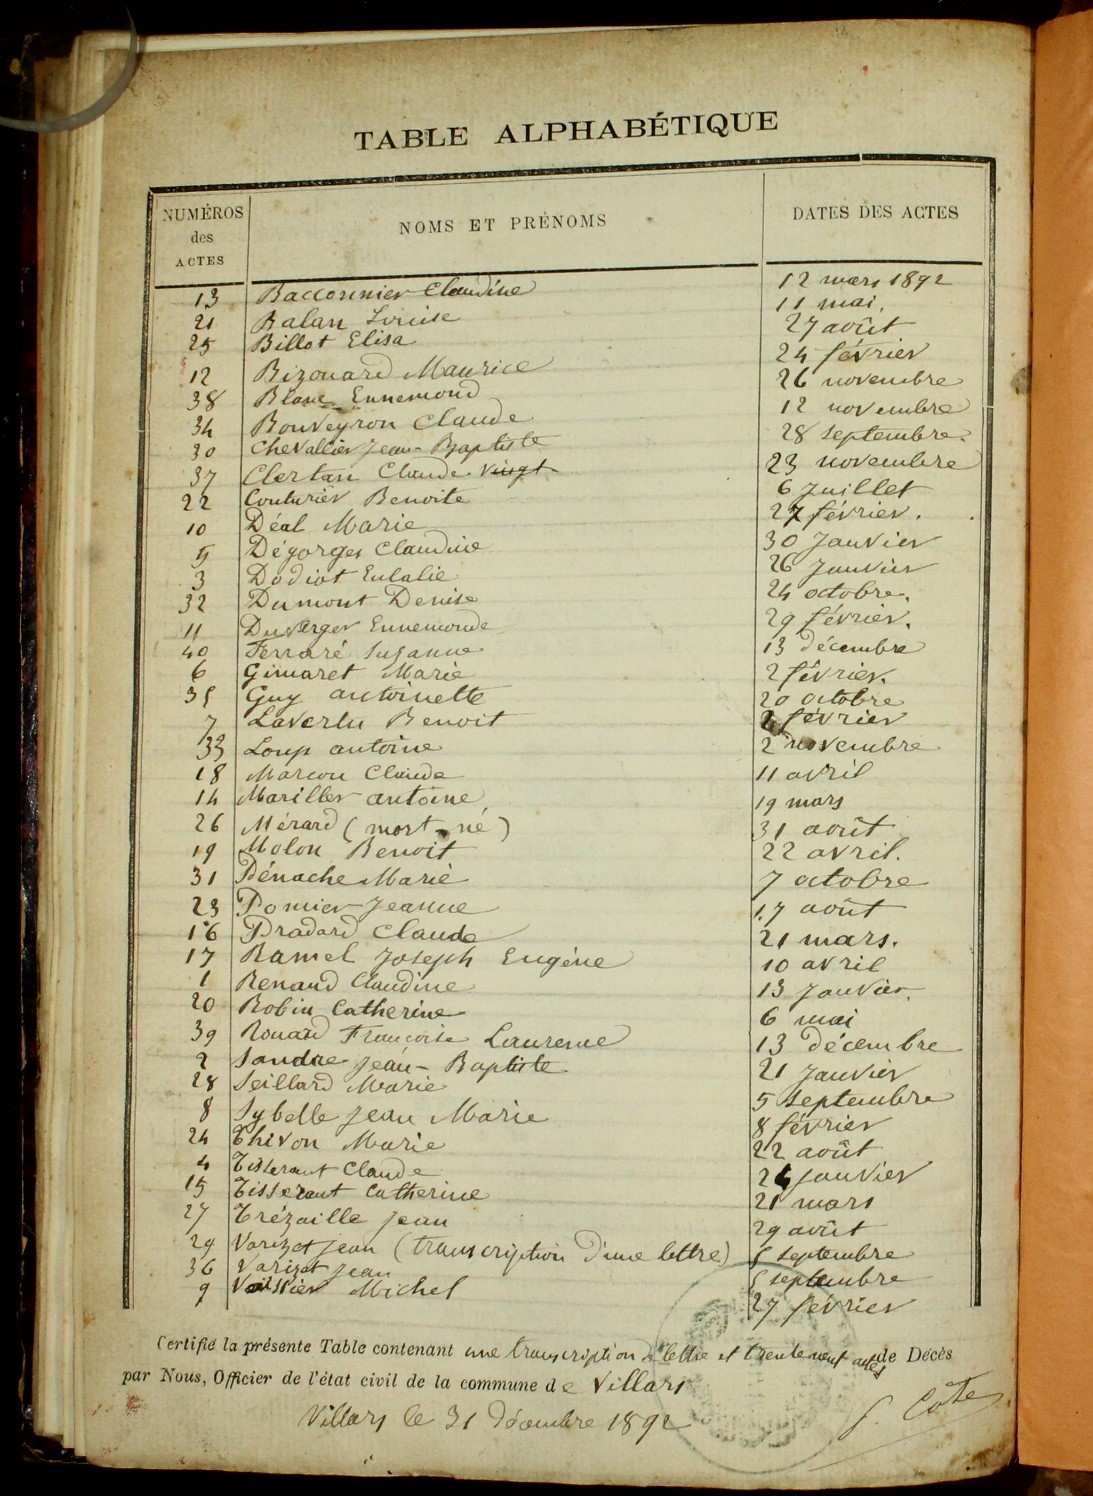 TABLE ALPHABÉTIQUE
NUMÉROS des ACTES NOMS ET PRÉNOMS DATES DES ACTES
13 Bacconnier Claudine 12 mars 1892
21 Balan Louise 11 mai.
25 Billot Elisa 27 août
12 Bizouard Maurice 24 février
38 Blanc Ennemond 26 novembre
34 Bouveyron Claude 12 novembre
30 Chevallier Jean-Baptiste 28 septembre.
37 Clertan Claude vingt 23 novembre
22 Couturier Benoite 6 Juillet
10 Déal Marie 27 février.
5 Dégorges Claudine 30 Janvier
3 Dodiot Eulalie 26 Janvier
32 Dumont Denise 24 octobre.
11 Duverger Ennemonde 29 février.
40 Ferraré Suzanne 13 décembre
6 Gimaret Marie 2 février.
35 Guy antoinette 20 octobre
7 Lavertu Benoit février
33 Loup antoine 2 novembre
18 Marcon Claude 11 avril
14 Mariller antoine 19 mars
26 Mérard (mort-né) 31 août
19 Molon Benoit 22 avril.
31 Pénache Marie 7 octobre
23 Pomier Jeanne 17 août
16 Pradard Claude 21 mars.
17 Ramel Joseph Eugène 10 avril
1 Renaud Claudine 13 Janvier.
20 Robin Catherine 6 mai
39 Rouard Françoise Laurence 13 décembre
2 Sandre Jean-Baptiste 21 Janvier
28 Seillard Marie 5 septembre
8 Sybelle Jean Marie 8 février
24 Thivon Marie 22 août
4 Tisserant Claude 24 Janvier
15 Tisserant Catherine 21 mars
27 Trézaille Jean 29 août
29 Varizat Jean (transcription d'une lettre) 5 septembre
36 Varizat Jean 5 septembre
9 Voissier Michel 27 février
Certifié la présente Table contenant une transcription de lettre et trente neuf actes de Décès
par Nous, Officier de l'état civil de la commune de Villars
Villars le 31 décembre 1892
J. Côte